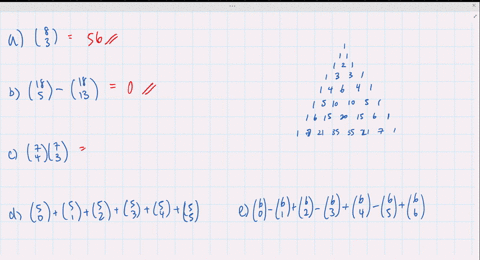 a) (8 3) = 56 //
b) (18 5) - (18 13) = 0 //
c) (7 4)(7 3) =
d) (5 0) + (5 1) + (5 2) + (5 3) + (5 4) + (5 5)
e) (6 0) - (6 1) + (6 2) - (6 3) + (6 4) - (6 5) + (6 6)
1
1 1
1 2 1
1 3 3 1
1 4 6 4 1
1 5 10 10 5 1
1 6 15 20 15 6 1
1 7 21 35 35 21 7 1